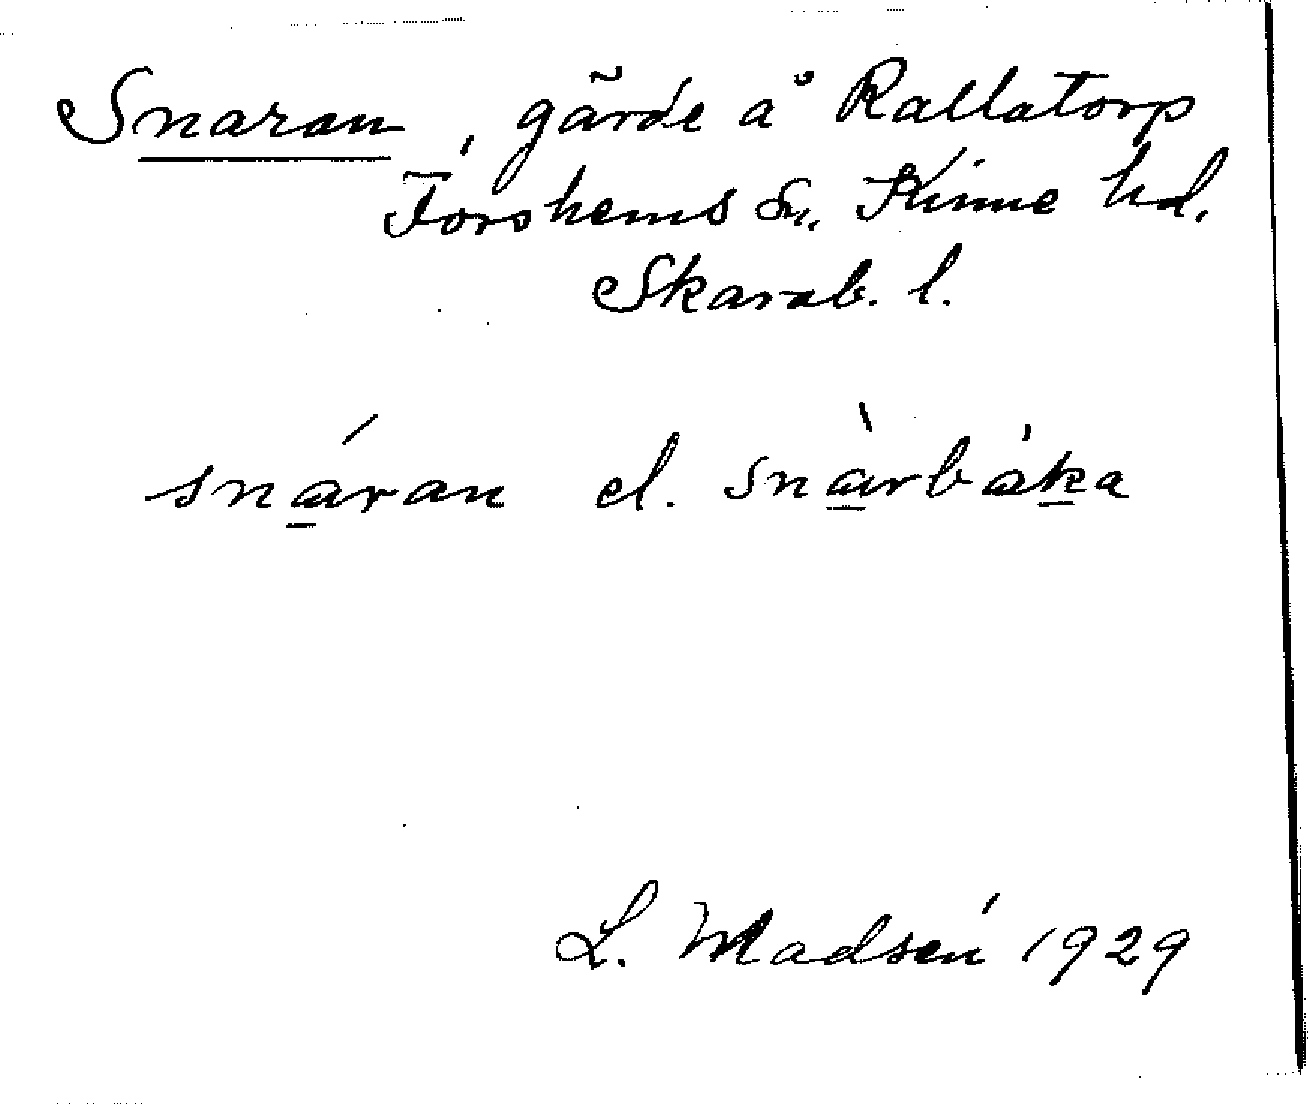 Snaran, gärde å Rallatorp
Forshems sn, Kinne hd.
Skarab. l.
snáran el. snàrbáka
L. Madsén 1929